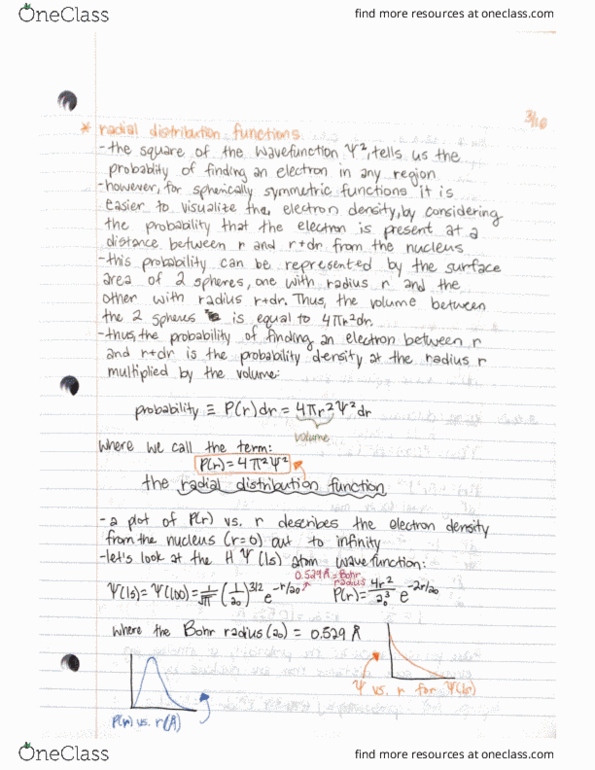 OneClass find more resources at oneclass.com
3/16
* radial distribution functions
- the square of the wavefunction Ψ², tells us the
probability of finding an electron in any region
- however, for spherically symmetric functions it is
easier to visualize the, electron density, by considering
the probability that the electron is present at a
distance between r and r+dr from the nucleus
- this probability can be represented by the surface
area of 2 spheres, one with radius r and the
other with radius r+dr. Thus, the volume between
the 2 spheres is equal to 4πr²dr.
- thus, the probability of finding an electron between r
and r+dr is the probability density at the radius r
multiplied by the volume:
probability ≡ P(r)dr = 4πr²Ψ²dr
volume
where we call the term:
P(r) = 4π²Ψ²
the radial distribution function
- a plot of P(r) vs. r describes the electron density
from the nucleus (r=0) out to infinity
- let's look at the H Ψ(1s) atom wavefunction:
0.529Å = Bohr radius
Ψ(1s) = Ψ(100) = 1/√π (1/a₀)^3/2 e^-r/a₀ P(r) = 4r²/a₀³ e^-2r/a₀
where the Bohr radius (a₀) = 0.529 Å
Ψ vs. r for Ψ(1s)
P(r) vs. r(Å)
OneClass find more resources at oneclass.com